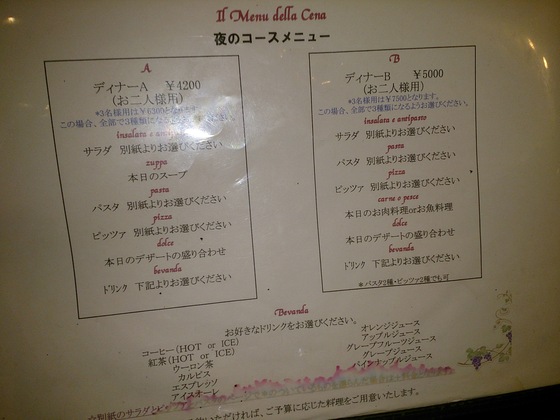 Il Menu della Cena
夜のコースメニュー
A
ディナーA ￥4200
(お二人様用)
*3名様用は￥6300となります。
この場合、全部で3種類になる
insalata e antipasto
サラダ 別紙よりお選びください
zuppa
本日のスープ
pasta
パスタ 別紙よりお選びください
pizza
ピッツァ 別紙よりお選びください
dolce
本日のデザートの盛り合わせ
bevanda
ドリンク 下記よりお選びください
B
ディナーB ￥5000
(お二人様用)
*3名様用は￥7500となります。
この場合、全部で3種類になるようお選びください。
insalata e antipasto
サラダ 別紙よりお選びください
pasta
パスタ 別紙よりお選びください
pizza
ピッツァ 別紙よりお選びください
carne o pesce
本日のお肉料理orお魚料理
dolce
本日のデザートの盛り合わせ
bevanda
ドリンク 下記よりお選びください
*パスタ2種・ピッツァ2種でも可
Bevanda
お好きなドリンクをお選びください。
コーヒー(HOT or ICE)
紅茶(HOT or ICE)
ウーロン茶
カルピス
エスプレッソ
アイスオーレ
オレンジジュース
アップルジュース
グレープフルーツジュース
グレープジュース
パイナップルジュース
☆別紙のサラダとピ
いただければ、ご予算に応じた料理をご用意いたします。